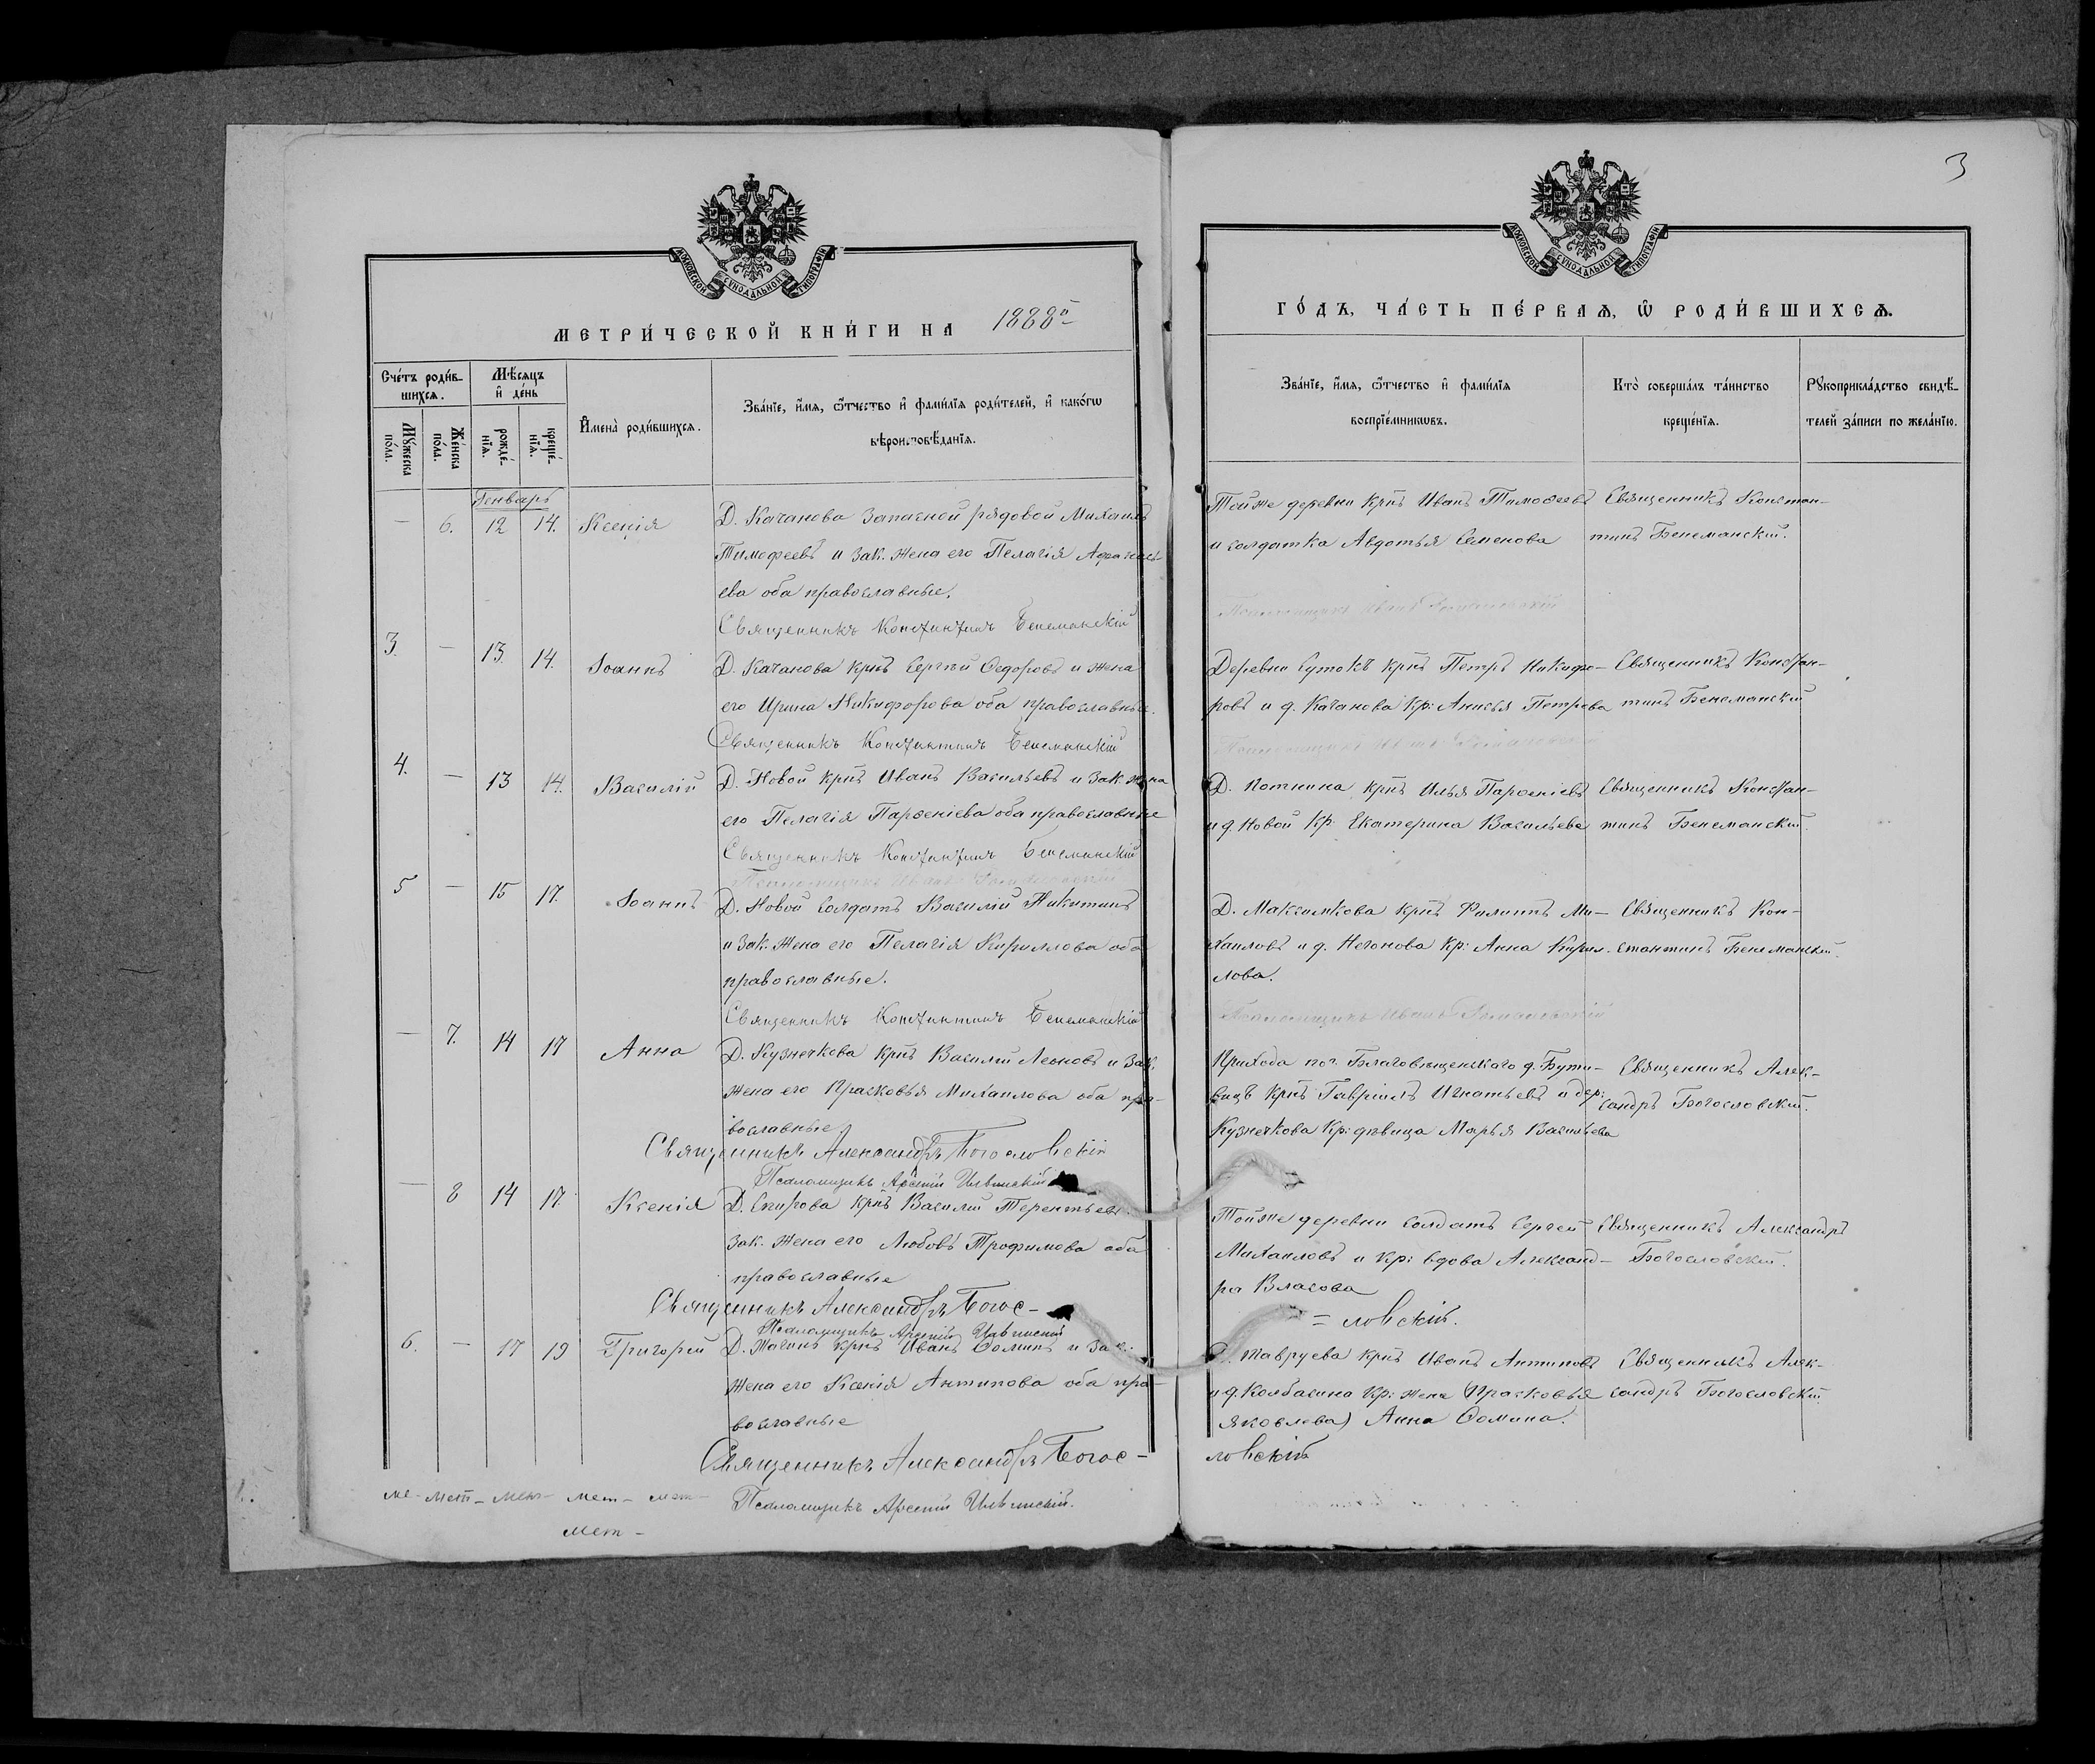 3
МОСКОВСКОЙ СѴНОДАЛЬНОЙ ТИПОГРАФІИ
МОСКОВСКОЙ СѴНОДАЛЬНОЙ ТИПОГРАФІИ
МЕТРИ́ЧЕСКОЙ КНИ́ГИ НА 1888й
ГО́ДЪ, ЧА́СТЬ ПЕ́РВАѦ, Ѡ҆ РОДИ́ВШИХСѦ.
Сче́тъ роди́в-
шихсѧ.
Мꙋ́жеска по́ла.
Же́нска по́ла.
Мѣ́сѧцъ
и҆ де́нь
рожде́-
нїѧ.
креще́-
нїѧ.
И҆мена̀ роди́вшихсѧ.
Зва́нїе, и҆́мѧ, ѻ҆́тчество и҆ фами́лїѧ роди́телей, и҆ како́гѡ
вѣроисповѣ́данїѧ.
Зва́нїе, и҆́мѧ, ѻ҆́тчество и҆ фами́лїѧ
воспрїе́мникѡвъ.
Кто̀ соверша́лъ та́инство
креще́нїѧ.
Рꙋкоприкла́дство свидѣ́-
телей за́писи по жела́нїю.
Генварь
— 6. 12 14. Ксенія
Д. Качанова запасной рядовой Михаилъ
Тимофеевъ и зак. жена его Пелагія Афанась-
ева оба православные.
Священникъ Константинъ Бенеманскій
Тойже деревни крнъ Иванъ Тимофеевъ
и солдатка Авдотья Семенова
Священникъ Констан-
тинъ Бенеманскій.
3. — 13. 14. Іоаннъ
Д. Качанова крнъ Сергій Ѳедоровъ и жена
его Ирина Никифорова оба православные.
Священникъ Константинъ Бенеманскій
Деревни Сутокъ крнъ Петръ Никифо-
ровъ и д. Качанова кр: Анисья Петрова
Священникъ Констан-
тинъ Бенеманскій
4. — 13 14. Василій
Д. Новой крнъ Иванъ Васильевъ и зак жена
его Пелагія Парѳеніева оба православные
Священникъ Константинъ Бенеманскій
Д. Потнина крнъ Илья Парѳеніевъ
и д. Новой Кр. Екатерина Васильева
Священникъ Констан-
тинъ Бенеманскій.
5 — 15 17. Іоаннъ
Д. Новой солдатъ Василій Никитинъ
и зак. жена его Пелагія Кириллова оба
православные.
Священникъ Константинъ Бенеманскій
Д. Максимкова крнъ Филиппъ Ми-
хаиловъ и д. Негонова кр: Анна Кирил-
лова.
Священникъ Кон-
стантинъ Бенеманскій.
— 7. 14 17 Анна
Д. Кузнечкова крнъ Василій Леоновъ и зак.
жена его Прасковья Михаилова оба пра-
вославные
Священникъ Александръ Богословскій
Псаломщикъ Арсеній
Прихода пог. Благовѣщенскаго д. Бути-
вицъ крнъ Гавріилъ Игнатьевъ и дер:
Кузнечкова Кр: дѣвица Марья Васильева
Священникъ Алек-
сандръ Богословскій.
— 8 14 17. Ксенія
Д. Спирова крнъ Василій Терентьевъ
зак. жена его Любовь Трофимова оба
православные
Священникъ Александръ Богос-
= ловскій.
Псаломщикъ Арсеній
Тойже деревни солдатъ Сергей
Михаиловъ и кр: вдова Александ-
ра Власова
Священникъ Александръ
Богословскій.
6. — 17 19 Григорій
Д. крнъ Иванъ Ѳоминъ и зак.
жена его Ксенія Антипова оба пра-
вославные
Священникъ Александръ Богос-
ловскій
Д. Тавруева крнъ Иванъ Антиповъ
и д. Колбасина кр: жена (Прасковья
Яковлева) Анна Ѳомина.
Священникъ Алек-
сандръ Богословскій.
ме- мет- мет- мет- мет-
мет-
Псаломщикъ Арсеній